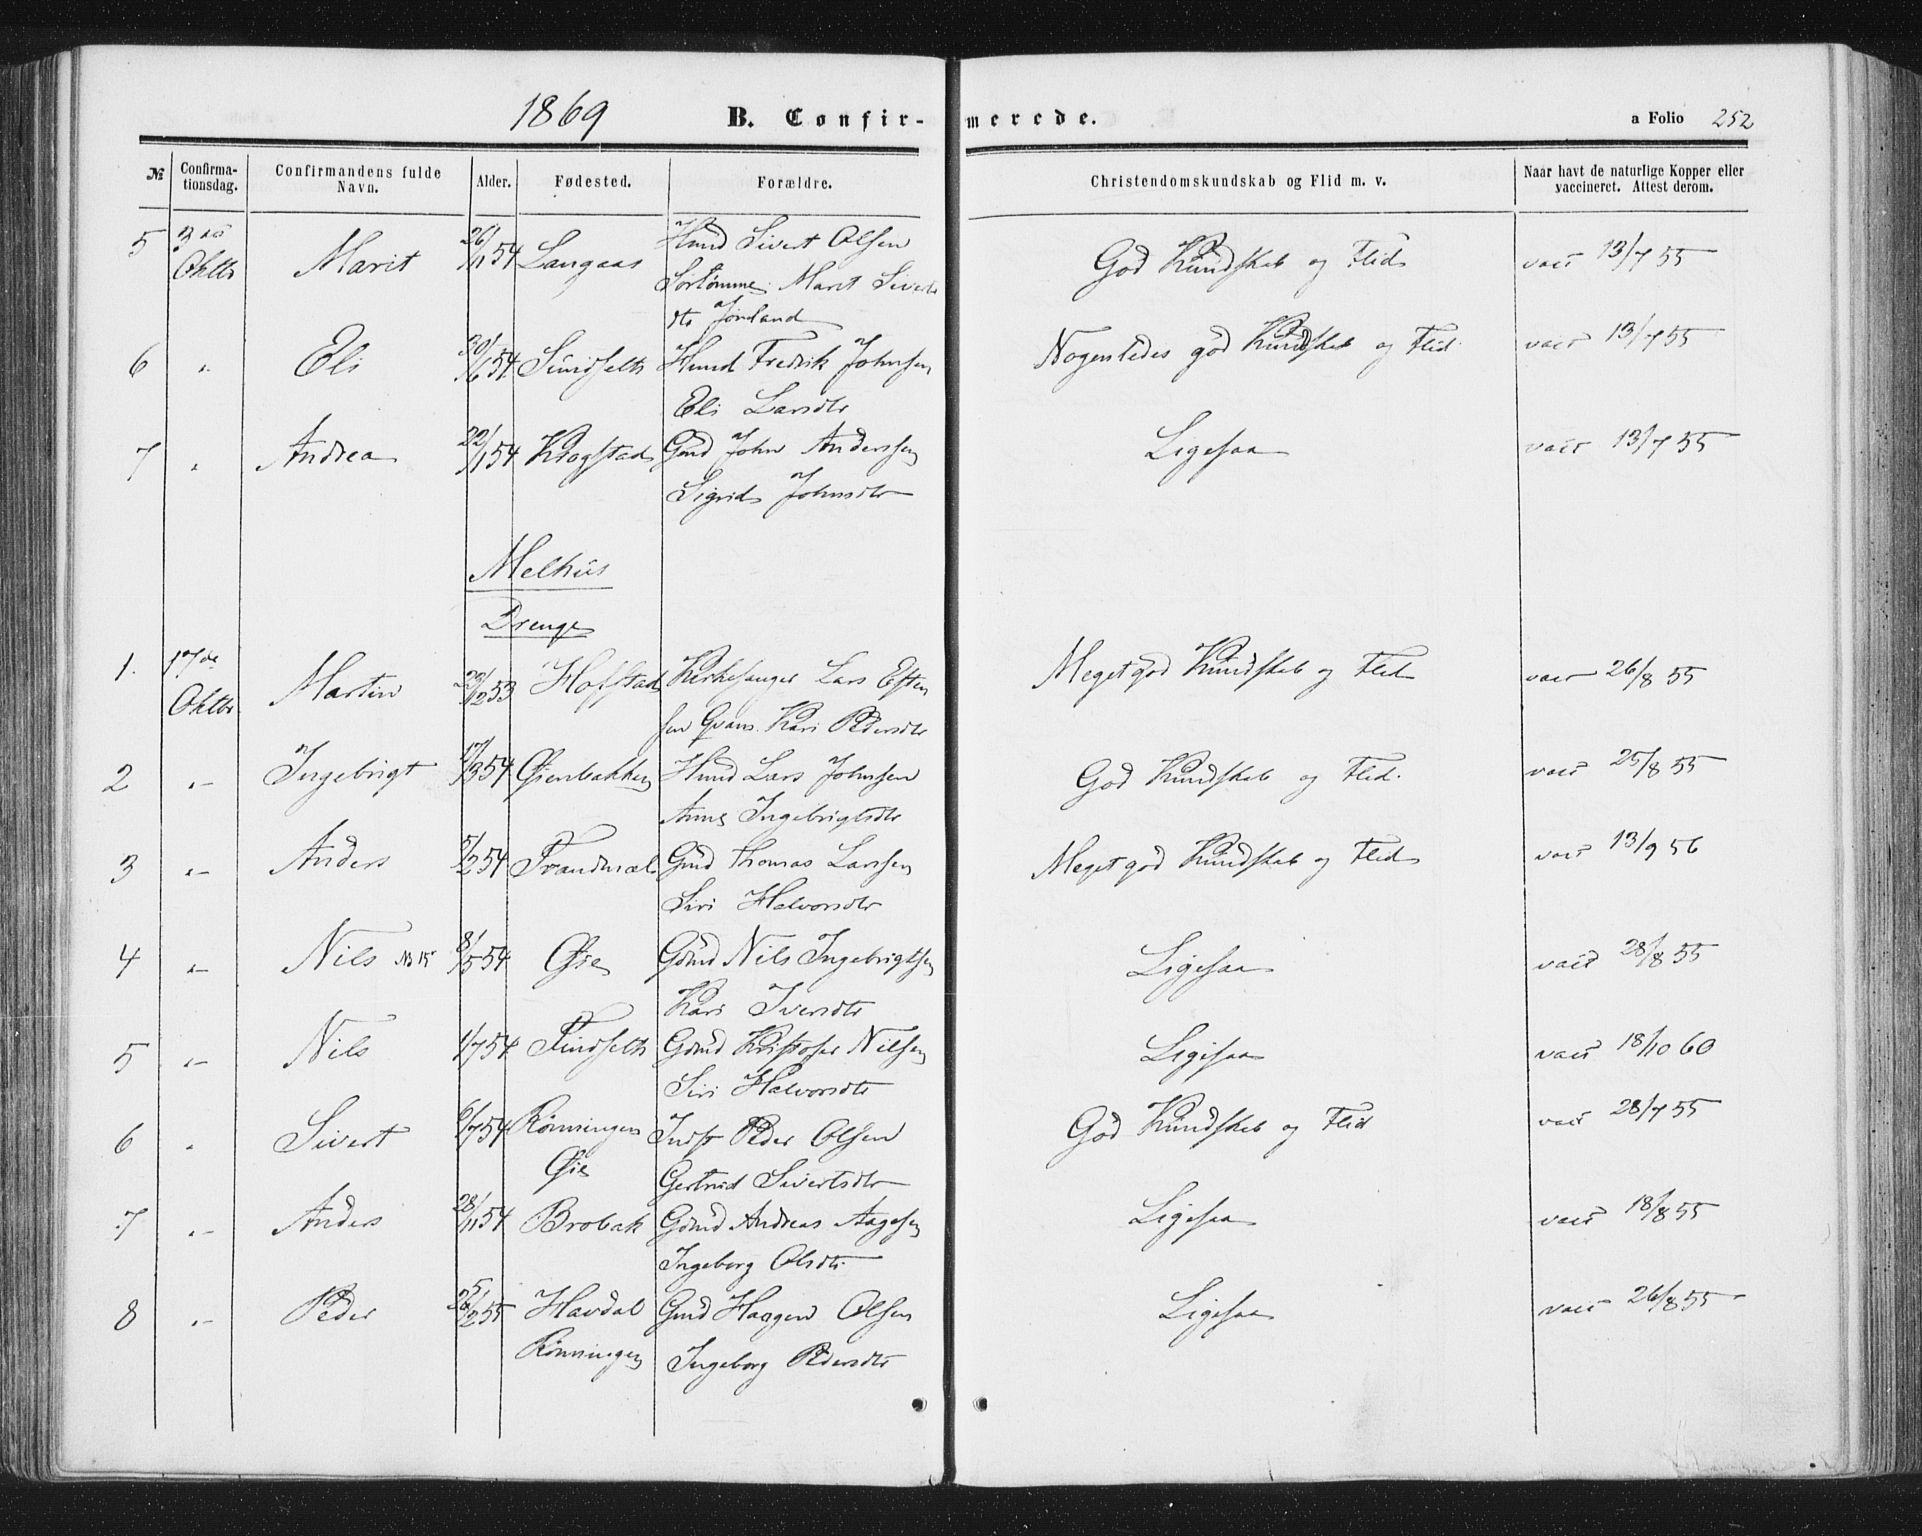 1869 B. Confirmerede. a Folio 252
№ Confirmationsdag. Confirmandens fulde Navn. Alder. Fødested. Forældre. Christendomskundskab og Flid m. v. Naar havt de naturlige Kopper eller vaccineret. Attest derom.
5 3die Oktbr Marit 26/11 54 Langaas Husmd Sivert Olsen God Kundskab og Flid vacc 13/7 55
Sørtømme. Marit Siverts
dtr Jønland
6 " Eli 30/6 54 Sundseth Husmd Fredrik Johnsen Nogenledes god Kundskab og Flid. vacc 13/7 55
Eli Larsdtr
7 " Andrea 22/1 54 Krogstad Gmd John Anderssen Ligesaa vacc 13/7 55
Sigrid Johnsdtr
Melhus
Drenge
1. 17de Oktbr Martin 23/12 53 Hofstad Kirkesanger Lars Esten Meget god Kundskab og Flid vacc 26/8 55
sen Qvam. Kari Pedersdtr
2 "- Ingebrigt 17/3 54 Øienbakken Husmd Lars Johnsen God Kundskab og Flid. vacc 25/8 55
Anne Ingebrigtsdtr
3 "- Anders 5/2 54 Trandmæl Gmd Thomas Larssen Meget god Kundskab og Flid vacc 13/9 56
Siri Halvorsdtr
4 "- Nils No 15 8/5 54 Øie Gbmd Nils Ingebrigtsen Ligesaa vacc 28/8 55
Kari Iversdtr
5 "- Nils 1/7 54 Gbmd Kristofer Nilsen Ligesaa vacc 18/10 60
Siri Halvorsdtr
6 " Sivert 6/7 54 Rønningen Indst Peder Olsen God Kundskab og Flid vacc 28/7 55
Øie Gertrud Sivertsdtr
7 "- Anders 28/11 54 Brobak Gbmd Andreas Aagesen Ligesaa vacc 18/8 55
Ingeborg Olsdtr
8 "- Peder 2 55 Havdal Gmd Haagen Olsen Ligesaa vacc 26/8 55
Rønningen Ingeborg Pedersdtr